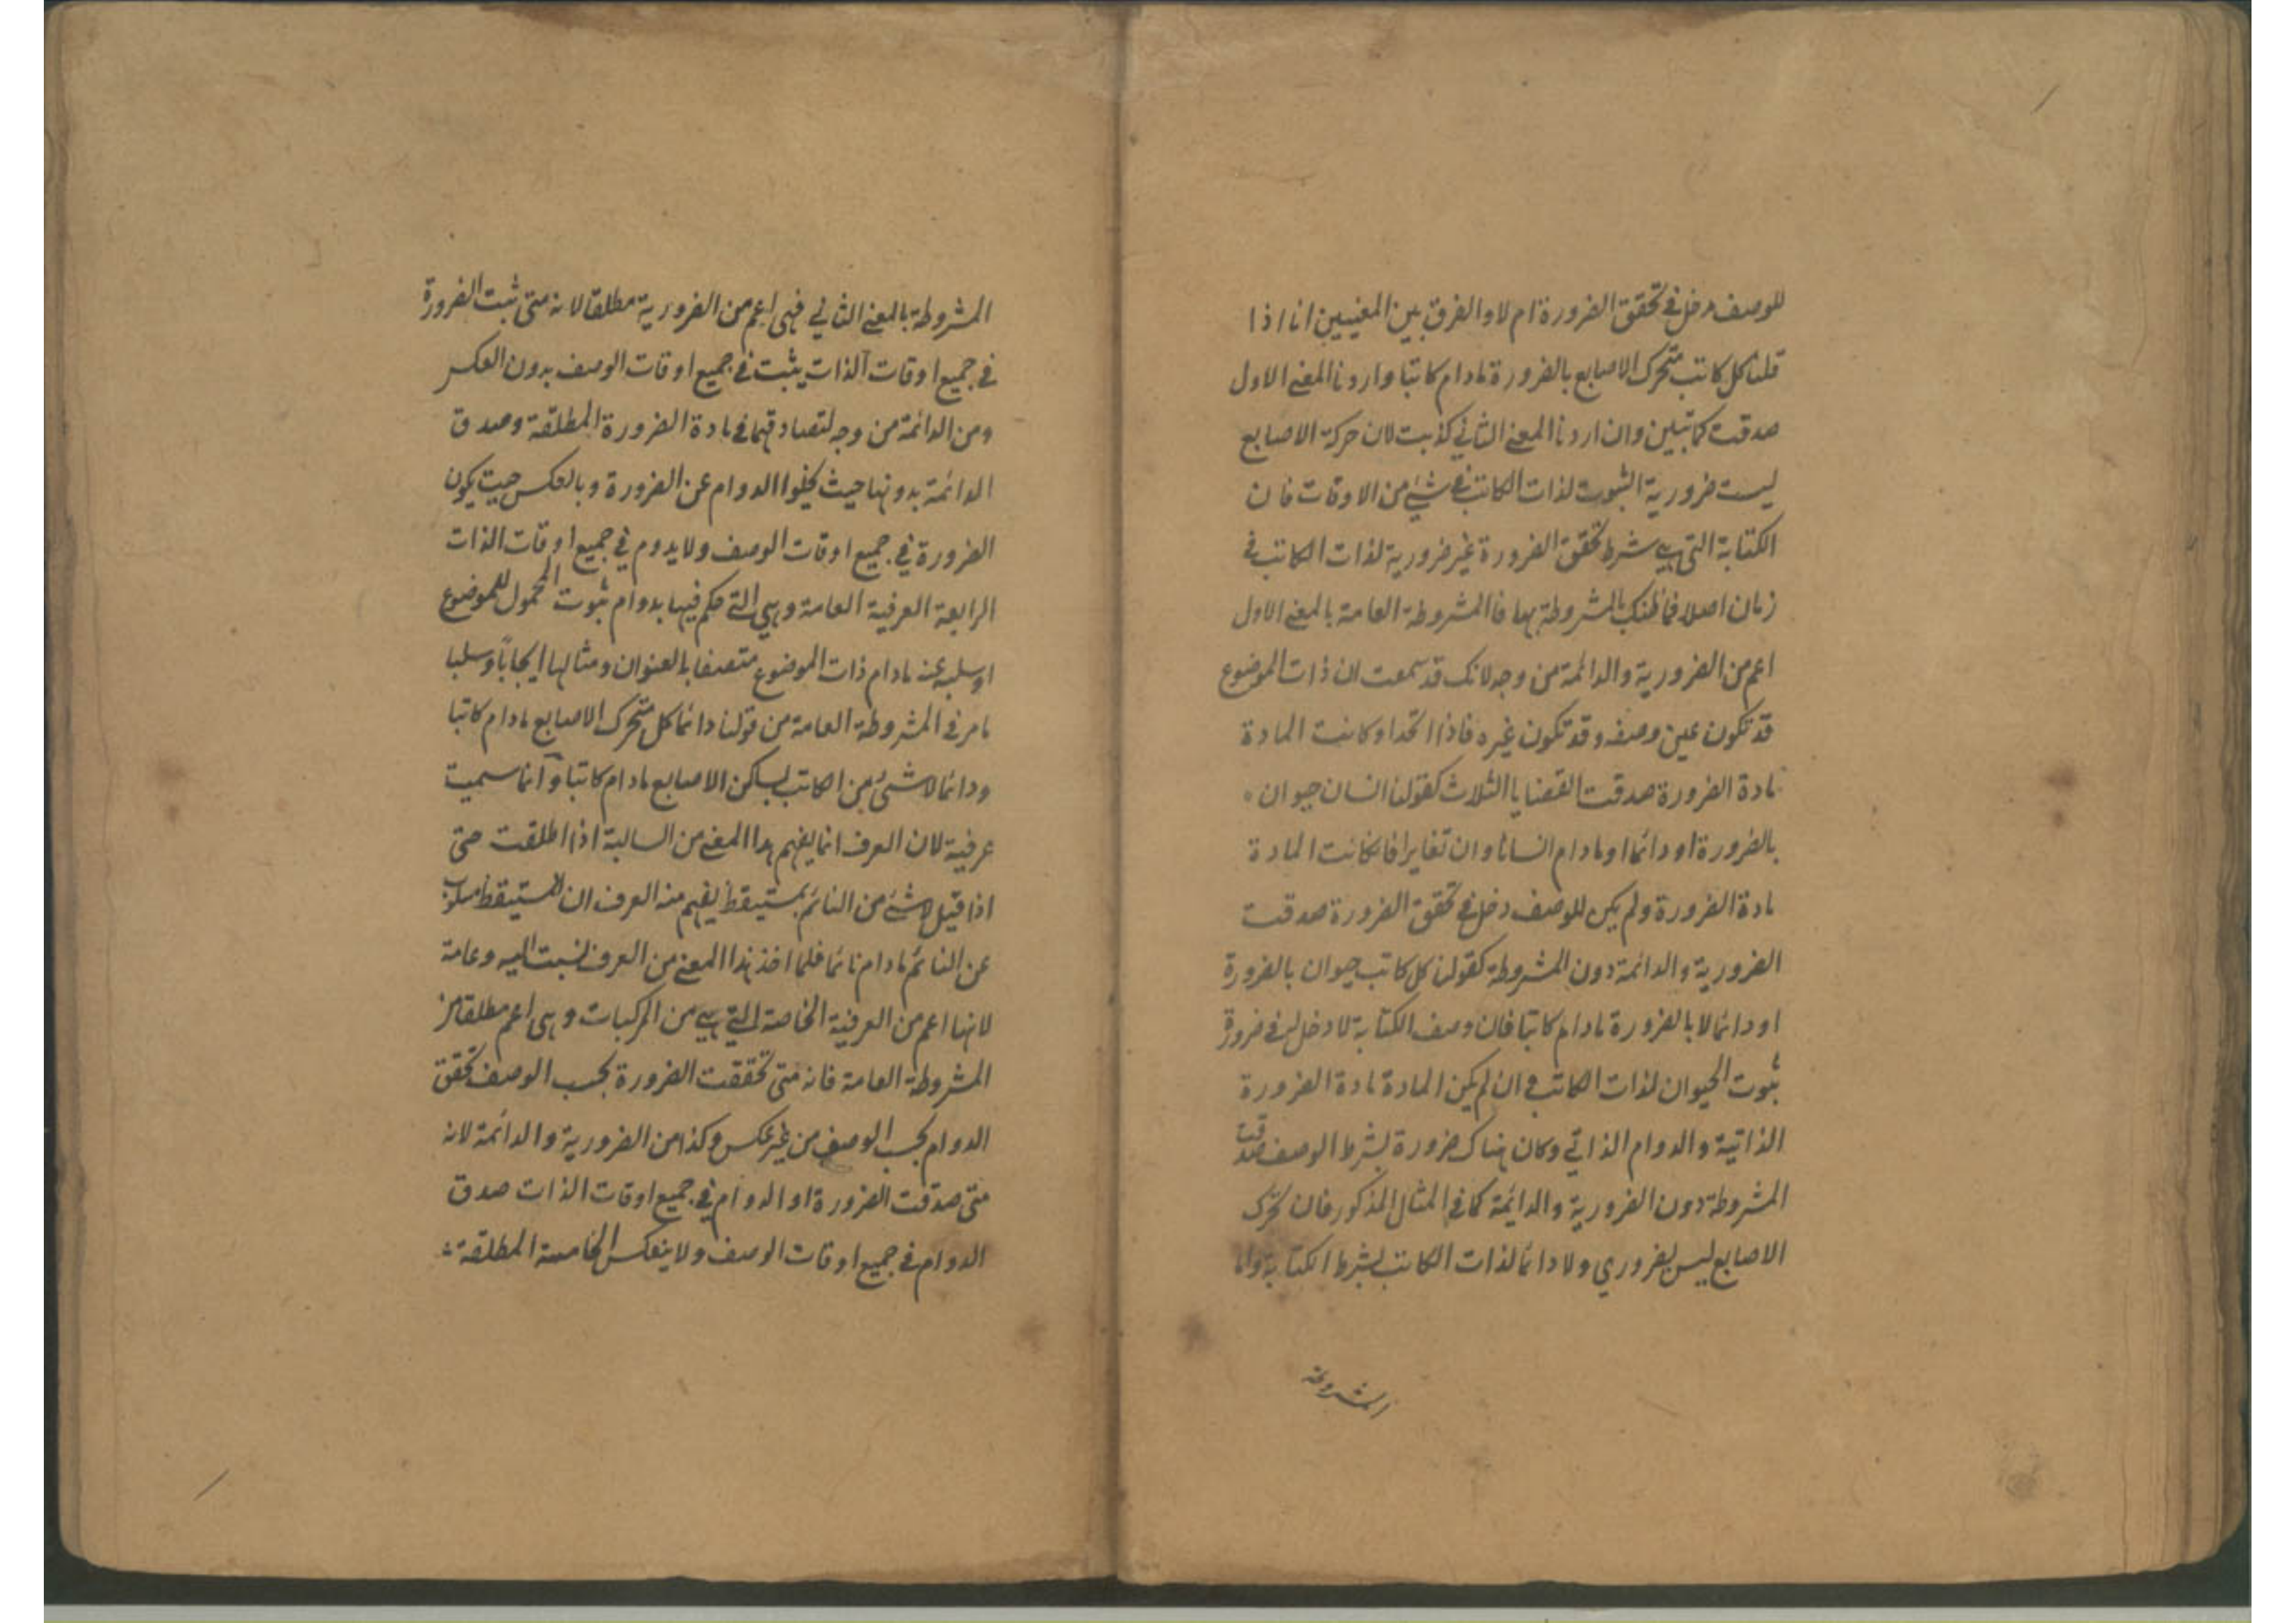 للوصف دخل في تحقق الضرورة ام لا والفرق بين المعنيين انا اذا
قلنا كل كاتب متحرك الاصابع بالضرورة مادام كاتبا واردنا المعنے الاول
صدقت كما تبين وان اردنا المعنے الثاني كذبت لان حركة الاصابع
ليست ضرورية الثبوت لذات الكاتب في شئ من الاوقات فان
الكتابة التي هي شرط تحقق الضرورة غير ضرورية لذات الكاتب في
زمان اصلا فما ظنك بالمشروطة بها فالمشروطة العامة بالمعنے الاول
اعم من الضرورية والدائمة من وجه لانك قد سمعت ان ذات الموضوع
قد تكون عين وصفه وقد تكون غيره فاذا اتحدا وكانت المادة
مادة الضرورة صدقت القضايا الثلاث كقولنا انسان حيوان
بالضرورة او دائما او مادام انسانا وان تغايرا فان كانت المادة
مادة الضرورة ولم يكن للوصف دخل في تحقق الضرورة صدقت
الضرورية والدائمة دون المشروطة كقولنا كل كاتب حيوان بالضرورة
او دائما لا بالضرورة مادام كاتبا فان وصف الكتابة لا دخل له في ضرورة
ثبوت الحيوان لذات الكاتب وان لم يكن المادة مادة الضرورة
الذاتية والدوام الذاتي وكان هناك ضرورة بشرط الوصف صدقت
المشروطة دون الضرورية والدائمة كما في المثال المذكور فان تحرك
الاصابع ليس بضروري ولا دائما لذات الكاتب بشرط الكتابة واما
المشروطة
المشروطة بالمعنے الثاني فهي اعم من الضرورية مطلقا لانه متى ثبت الضرورة
في جميع اوقات الذات يثبت في جميع اوقات الوصف بدون العكس
ومن الدائمة من وجه لتصادقهما في مادة الضرورة المطلقة وصدق
الدائمة بدونها حيث يخلوا الدوام عن الضرورة وبالعكس حيث يكون
الضرورة في جميع اوقات الوصف ولا يدوم في جميع اوقات الذات
الرابعة العرفية العامة وهي التي حكم فيها بدوام ثبوت المحمول للموضوع
او سلبه عنه مادام ذات الموضوع متصفا بالعنوان ومثالها ايجابًا وسلبا
مامر في المشروطة العامة من قولنا دائما كل متحرك الاصابع مادام كاتبا
ودائما لا شئ من الكاتب بساكن الاصابع مادام كاتبا وانما سميت
عرفية لان العرف انما يفهم هذا المعنے من السالبة اذا اطلقت حتى
اذا قيل لا شئ من النائم بمستيقظ يفهم منه العرف ان المستيقظ مسلوب
عن النائم مادام نائما فلما اخذ هذا المعنے من العرف نسبت اليه وعامة
لانها اعم من العرفية الخاصة التي هي من المركبات وهي اعم مطلقا من
المشروطة العامة فانه متى تحققت الضرورة بحسب الوصف تحقق
الدوام بحسب الوصف من غير عكس وكذا من الضرورية والدائمة لانه
متى صدقت الضرورة او الدوام في جميع اوقات الذات صدق
الدوام في جميع اوقات الوصف ولا ينعكس الخامسة المطلقة